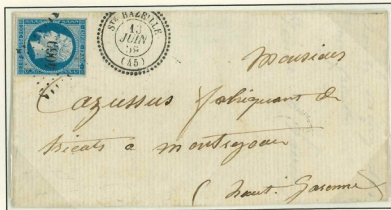 STE BAZEILLE
13
JUIN
58
(45)
Monsieur
Cazussus fabriquant de
tricots a montrejeau
(haute Garonne